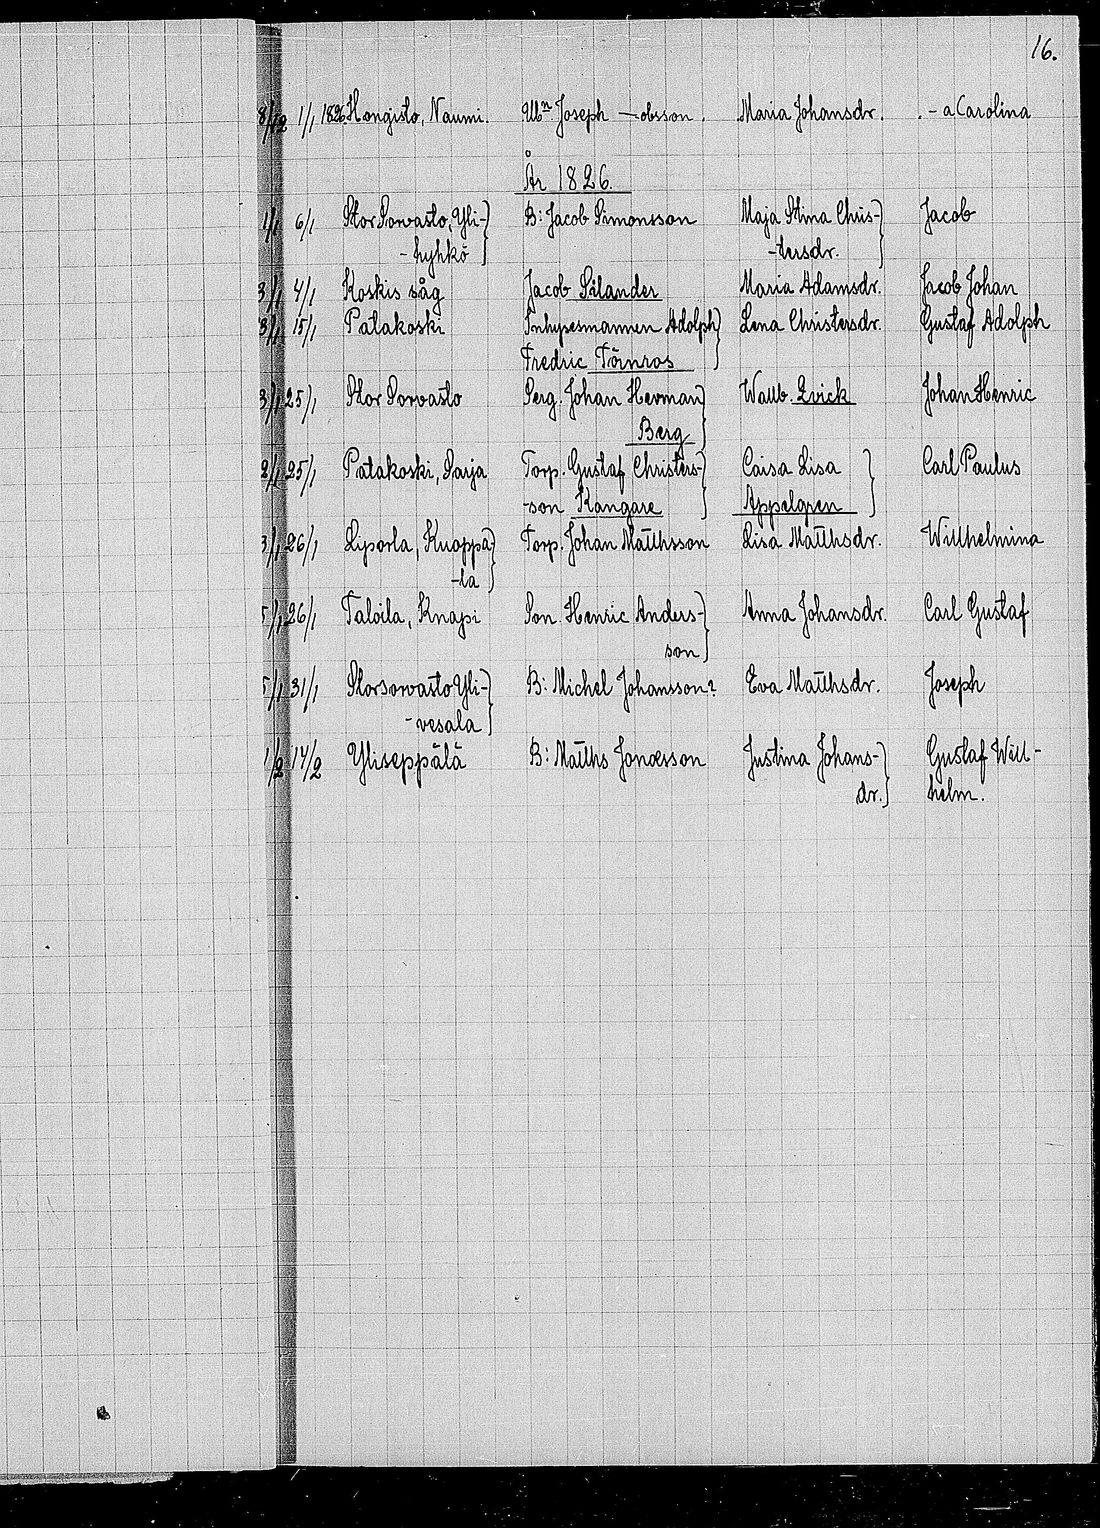 16.
8/12 1/1 1826. Hongisto, Naumi. Ubn. Joseph —obsson. Maria Johansdr. - a Carolina
År 1826.
1/1 6/1 Stor Sorvasto, Yli- B: Jacob Simonsson Maja Stina Chris- Jacob
- hyhkö -tersdr.
3/1 4/1 Koskis såg Jacob Silander Maria Adamsdr. Jacob Johan
8/1 15/1 Patakoski Inhysesmannen Adolph Lena Christersdr. Gustaf Adolph
Fredric Törnros
3/1 25/1 Stor Sorvasto Serg. Johan Herman Wallb. Qvick Johan Henric
Berg
2/1 25/1 Patakoski, Sarja Torp. Gustaf Christers- Caisa Lisa Carl Paulus
-son Kangare Appelgren
3/1 26/1 Liporla, Knoppa Torp. Johan Matthsson Lisa Matthsdr. Willhelmina
-la
5/1 26/1 Taloila, Knapi Son. Henric Anders- Anna Johansdr. Carl Gustaf
son
5/1 31/1 Storsorvasto Yli- B: Michel Johansson? Eva Matthsdr. Joseph
- vesala
1/2 14/2 Yliseppälä B: Matths Jonoesson Justina Johans- Gustaf Will-
dr. helm.